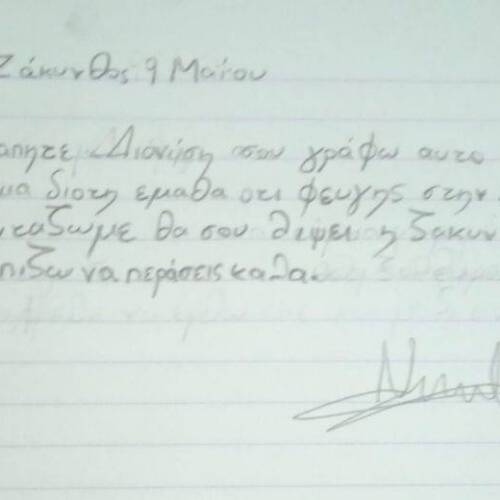 Ζάκυνθος 9 Μαΐου
απητε Διονύση σου γράφω αυτο
μα διοτη εμαθα οτι φευγης στην
ταζωμε θα σου λειψει η ζακυν
πιζω να περάσεις καλα.